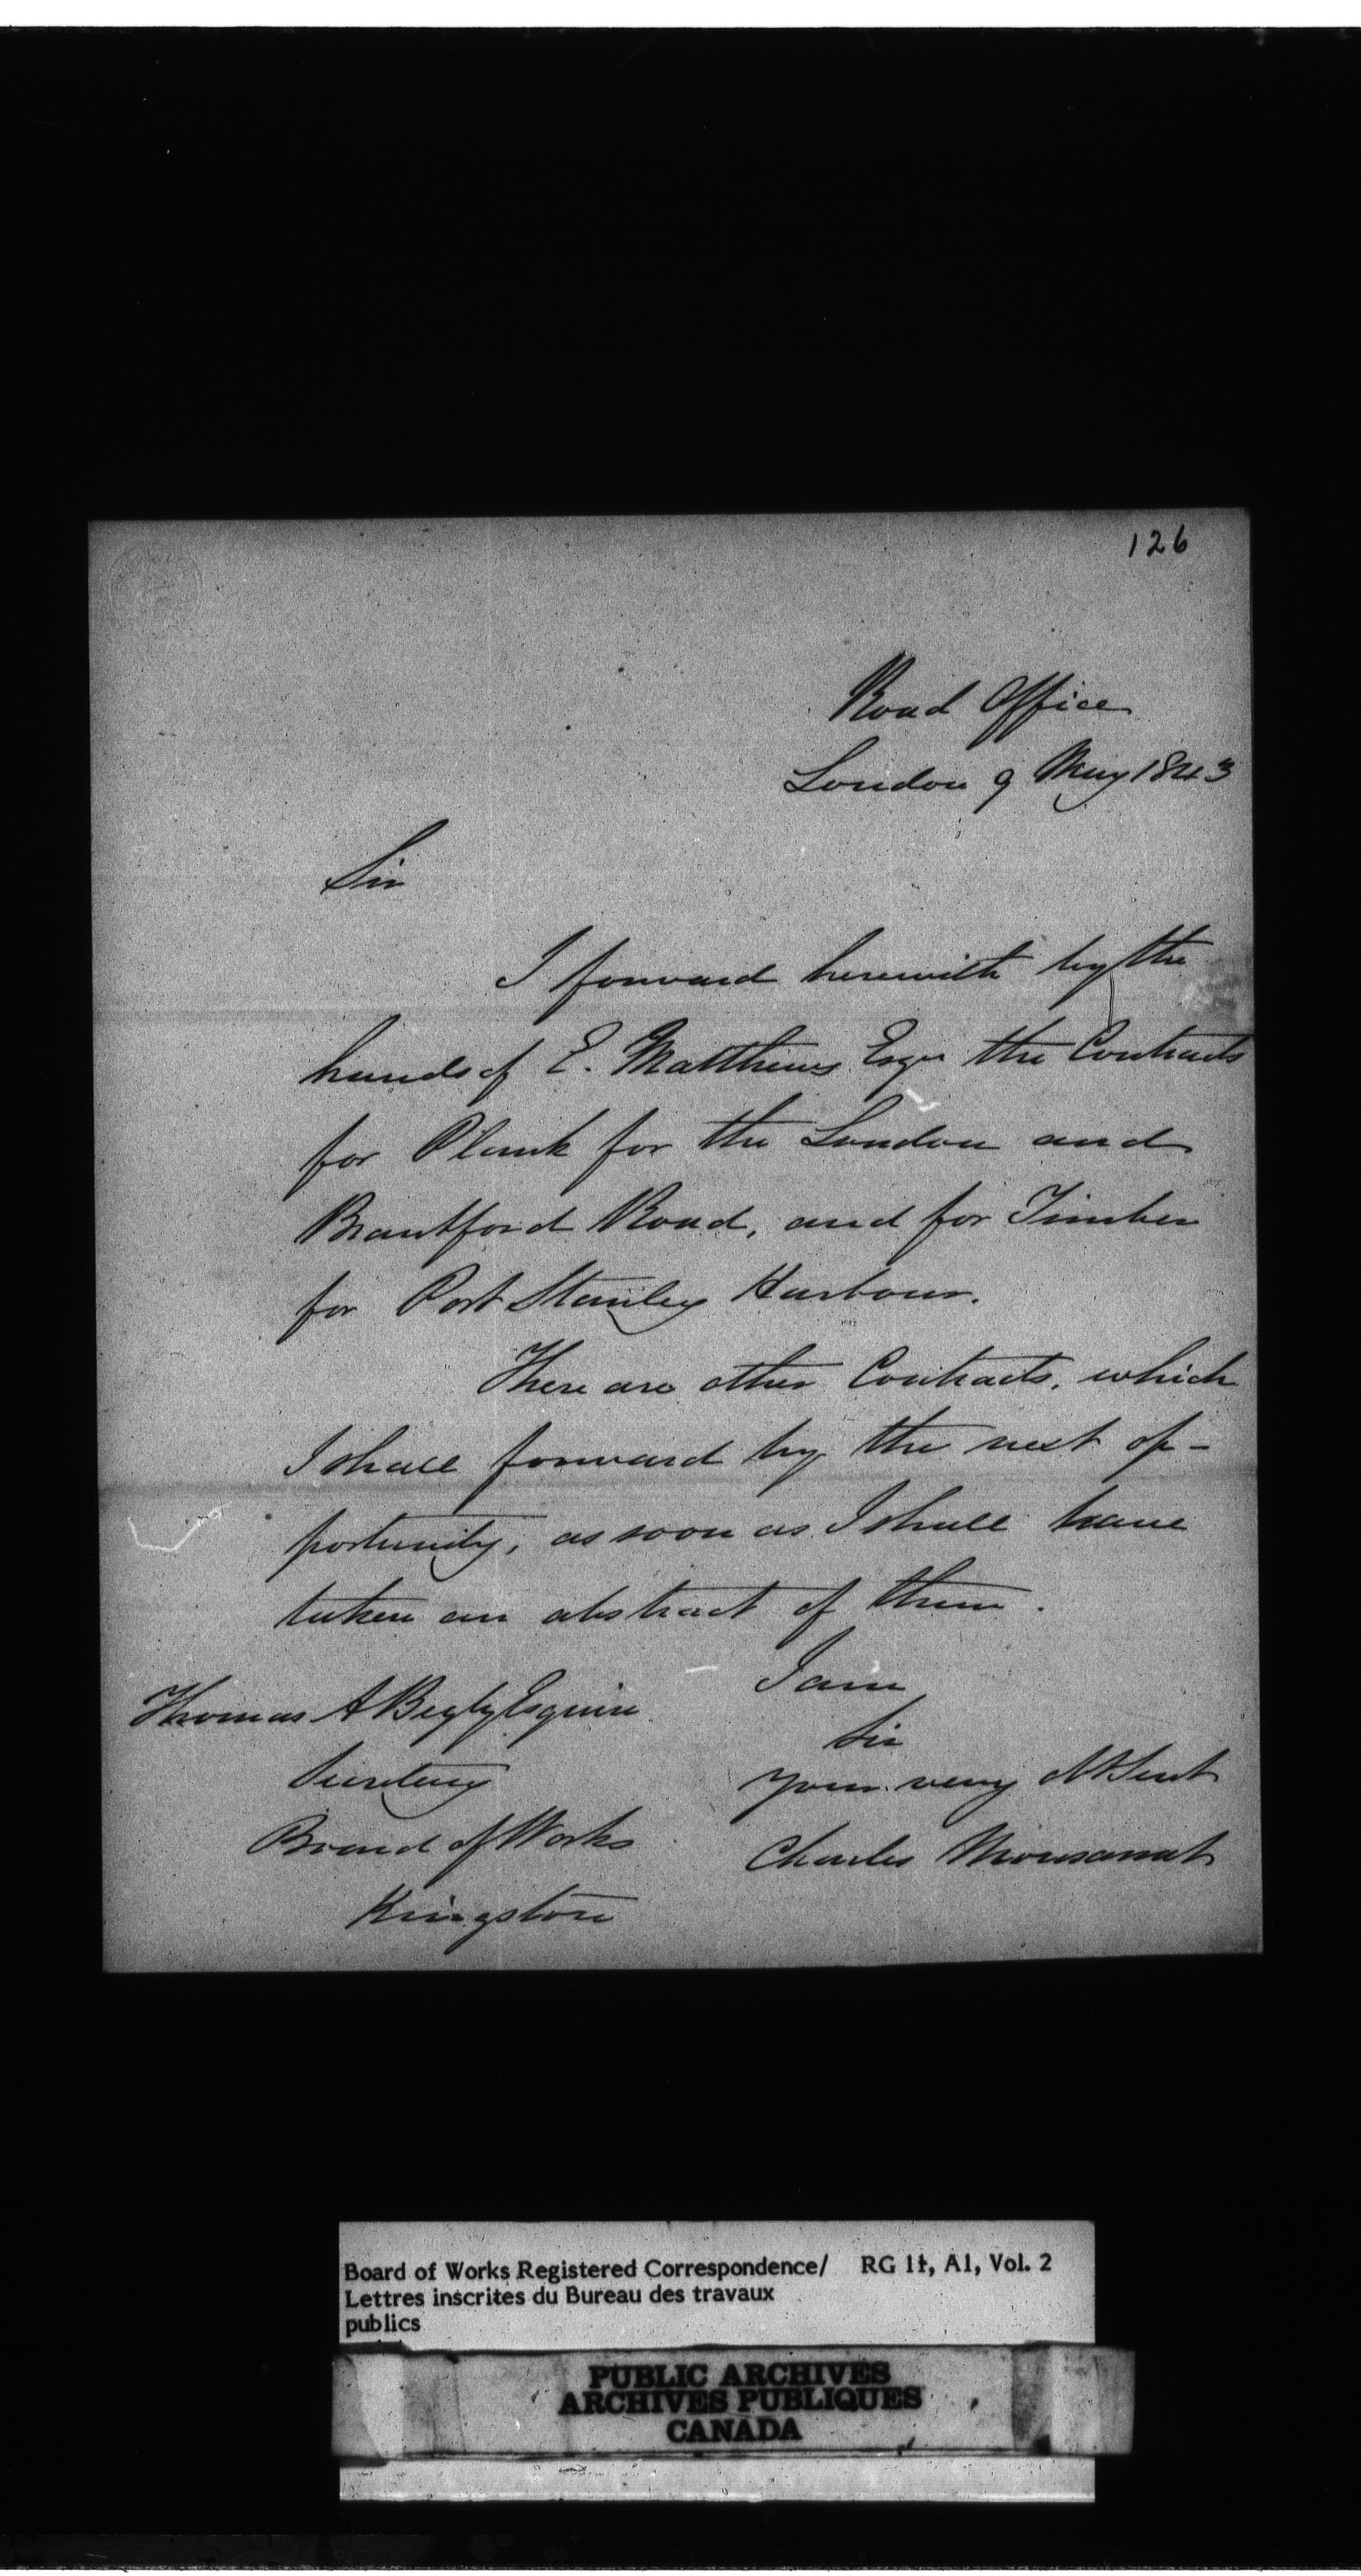 126
Road Office
London 9 May 1843
Sir
I forward herewith by the
hands of E. Matthews Esqr the Contracts
for Plank for the London and
Brantford Road, and for Timber
for Port Stanley Harbour.
There are other Contracts, which
I shall forward by the next op-
portunity, as soon as I shall have
taken an abstract of them.
I am
Sir
your very Ob Sert
Charles Monsarrat
Thomas A Begly Esquire
Secretary
Board of Works
Kingston
Board of Works Registered Correspondence/ RG 11, A1, Vol. 2
Lettres inscrites du Bureau des travaux
publics
PUBLIC ARCHIVES
ARCHIVES PUBLIQUES
CANADA